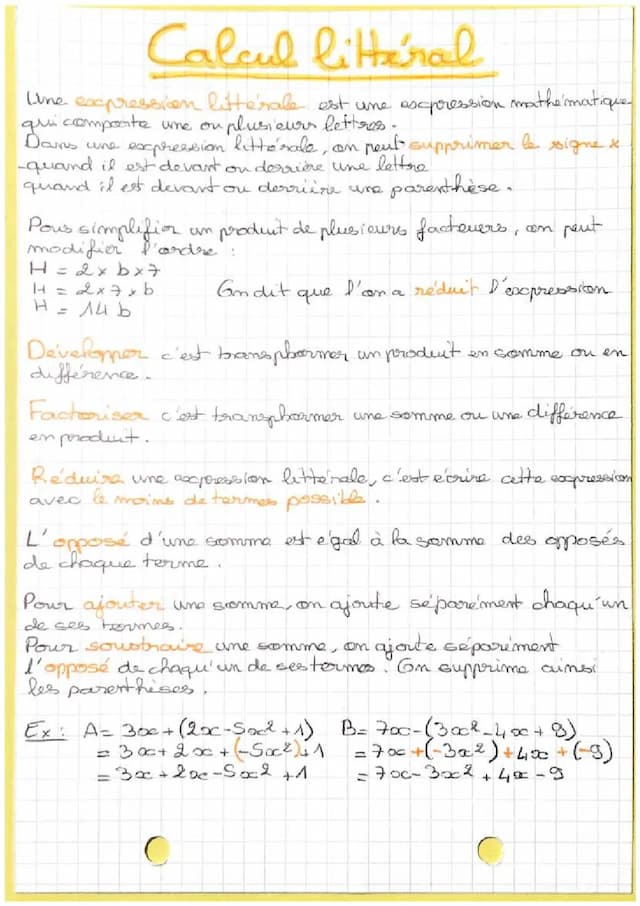 Calcul littéral
Une expression littérale est une expression mathématique
qui comporte une ou plusieurs lettres.
Dans une expression littérale, on peut supprimer le signe x
-quand il est devant ou derrière une lettre
quand il est devant ou derrière une parenthèse.
Pous simplifier un produit de plusieurs facteuers, on peut
modifier l'ordre :
H = 2 x b x 7
H = 2 x 7 x b On dit que l'on a réduit l'expression
H = 14 b
Développer c'est transphormer un produit en somme ou en
différence.
Factoriser c'est transphormer une somme ou une différence
en produit.
Réduire une expression littérale, c'est écrire cette expression
avec le moins de termes possible.
L'opposé d'une somme est égal à la somme des opposés
de chaque terme.
Pour ajouter une somme, on ajoute séparément chaqu'un
de ses termes.
Pour soustraire une somme, on ajoute séparément
l'opposé de chaqu'un de ses termes. On supprime ainsi
les parenthèses.
Ex : A= 3x+(2x-5x²+1) B= 7x-(3x²-4x+9)
= 3x+2x+(-5x²)+1 =7x+(-3x²)+4x+(-9)
= 3x+2x-5x²+1 =7x-3x²+4x-9